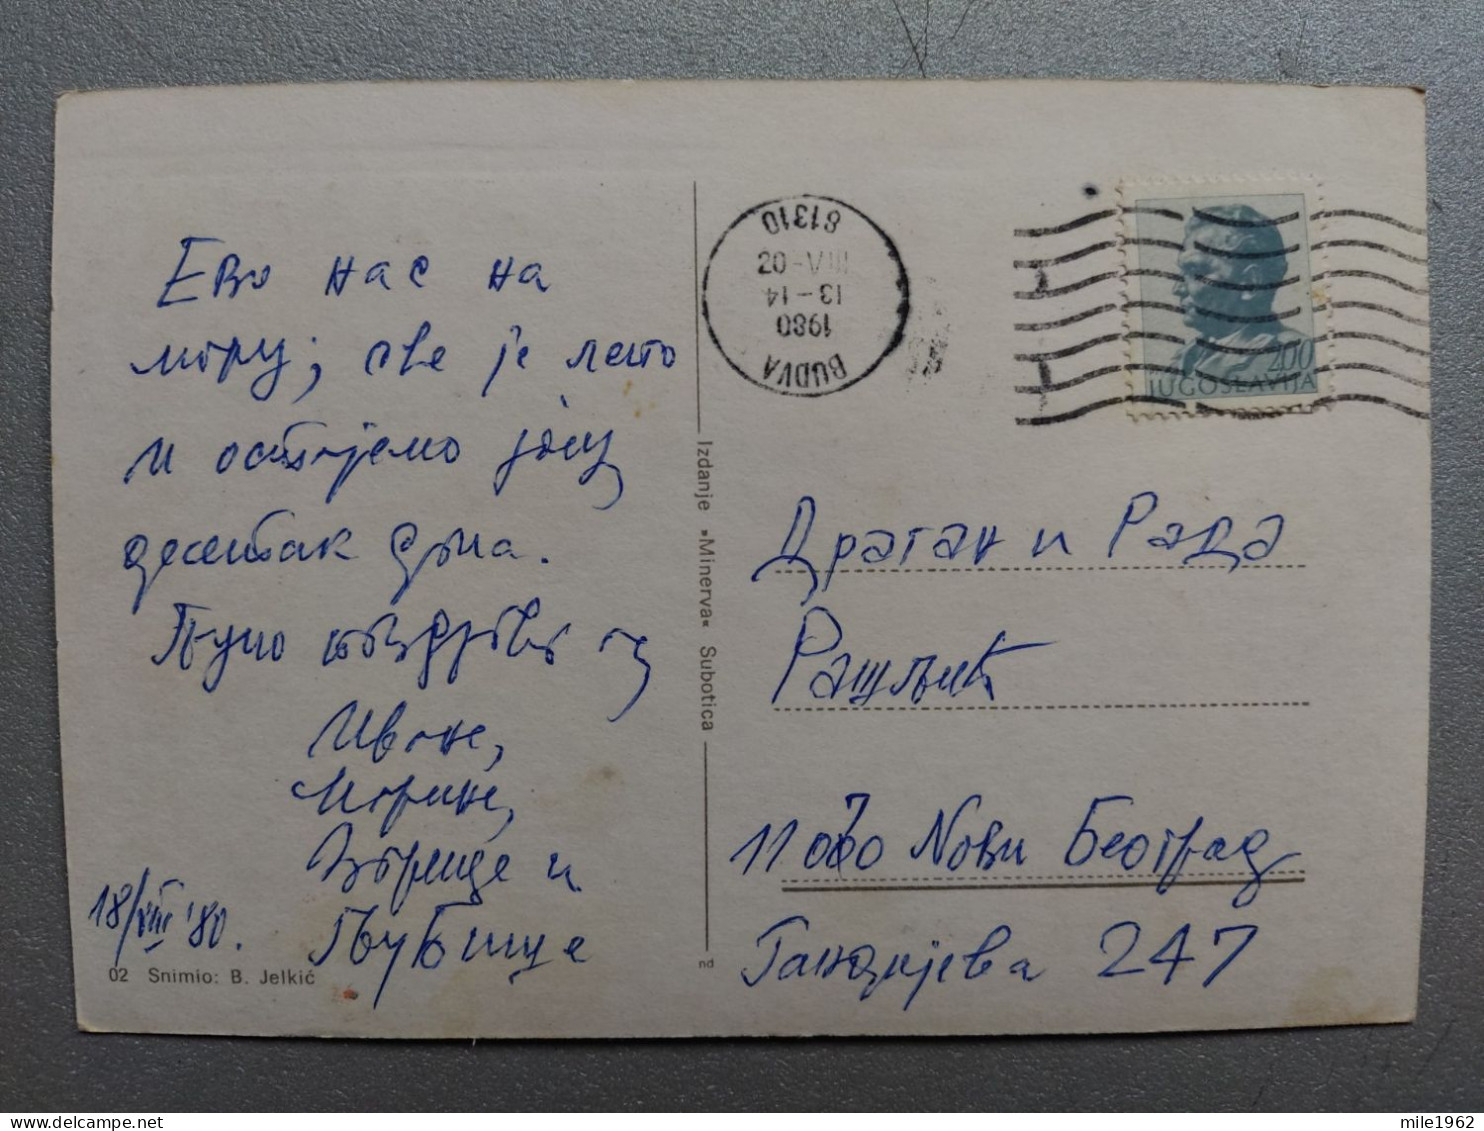 Ево нас на
мору; све је лепо
и остајемо још
десетак дана.
Пуно поздрава од
Ивоне,
Марине,
Зорице и
Љубише
18/VIII '80.
02 Snimio: B. Jelkić
Izdanje »Minerva« Subotica
nd
81310
20-VIII
13-14
1980
BUDVA
2.00
JUGOSLAVIJA
Драган и Рада
11070 Нови Београд
Гандијева 247
mile1962